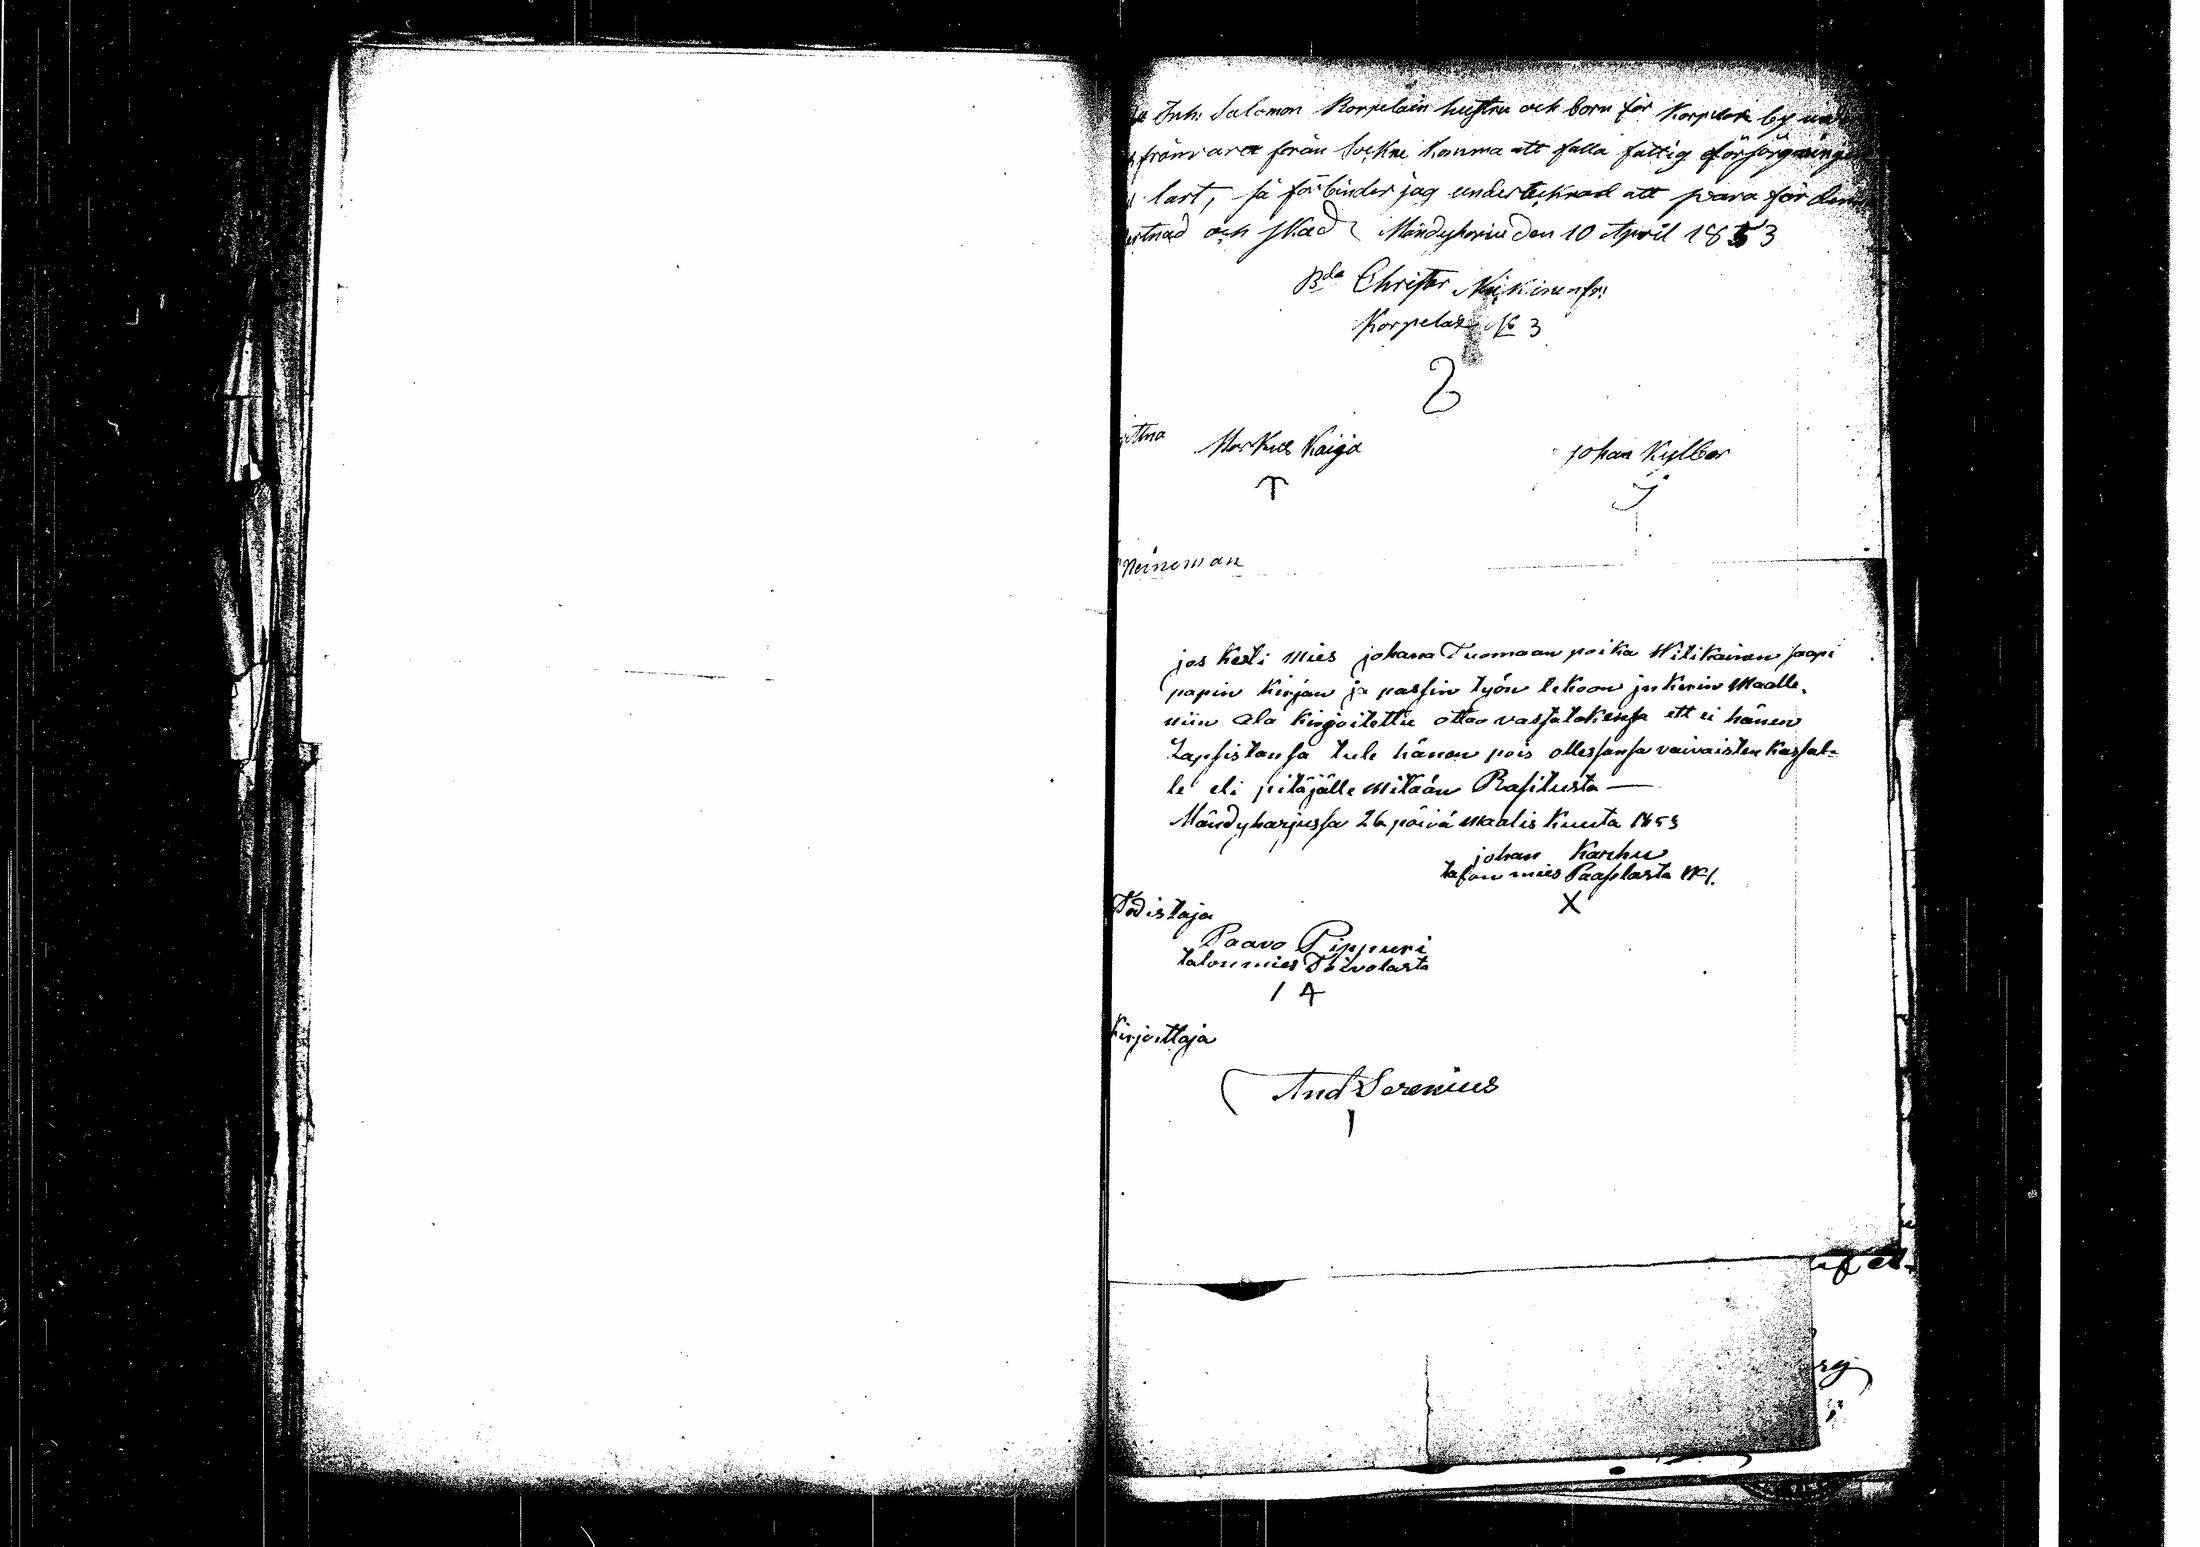 Inh: Salamon Korpelain hustru och born för Korpela by
frånvara från Sockne komma att falla fattig försörgninge
last, så förbinder jag undertecknad att svara för
och skad Mändyharju den 10 April 1853
Bda Christer
Korpelas No 3
Markus Kaija
Johan Kylber
Neineman
jos Kesti Mies johana Tuomaan poika Witikainen saapi
papin kirjan ja passin työn tekoon jnkerin Maalle.
niin ala kirjoitettu ottaa vastataksensa ett ei hänen
Lapsistansa tule hänen pois ollessansa vaivaisten kassal-
le eli pitäjälle mitään Rasitusta —
Mändyharjussa 26 päivä Maalis Kuuta 1853
johan Karhu
talon mies Paaslasta N 1.
X
Todistaja
Paavo Pippuri
talon mies Toivolasta
Kirjoittaja
And Serenius